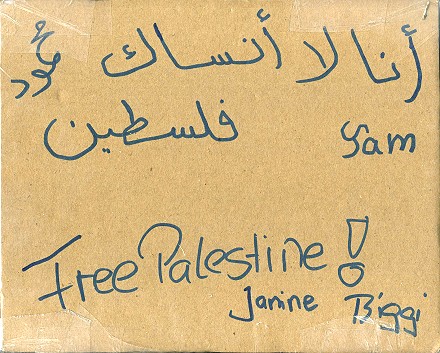 أنا لا أنساك محمود
فلسطين
Free Palestine!
Janine Biggi